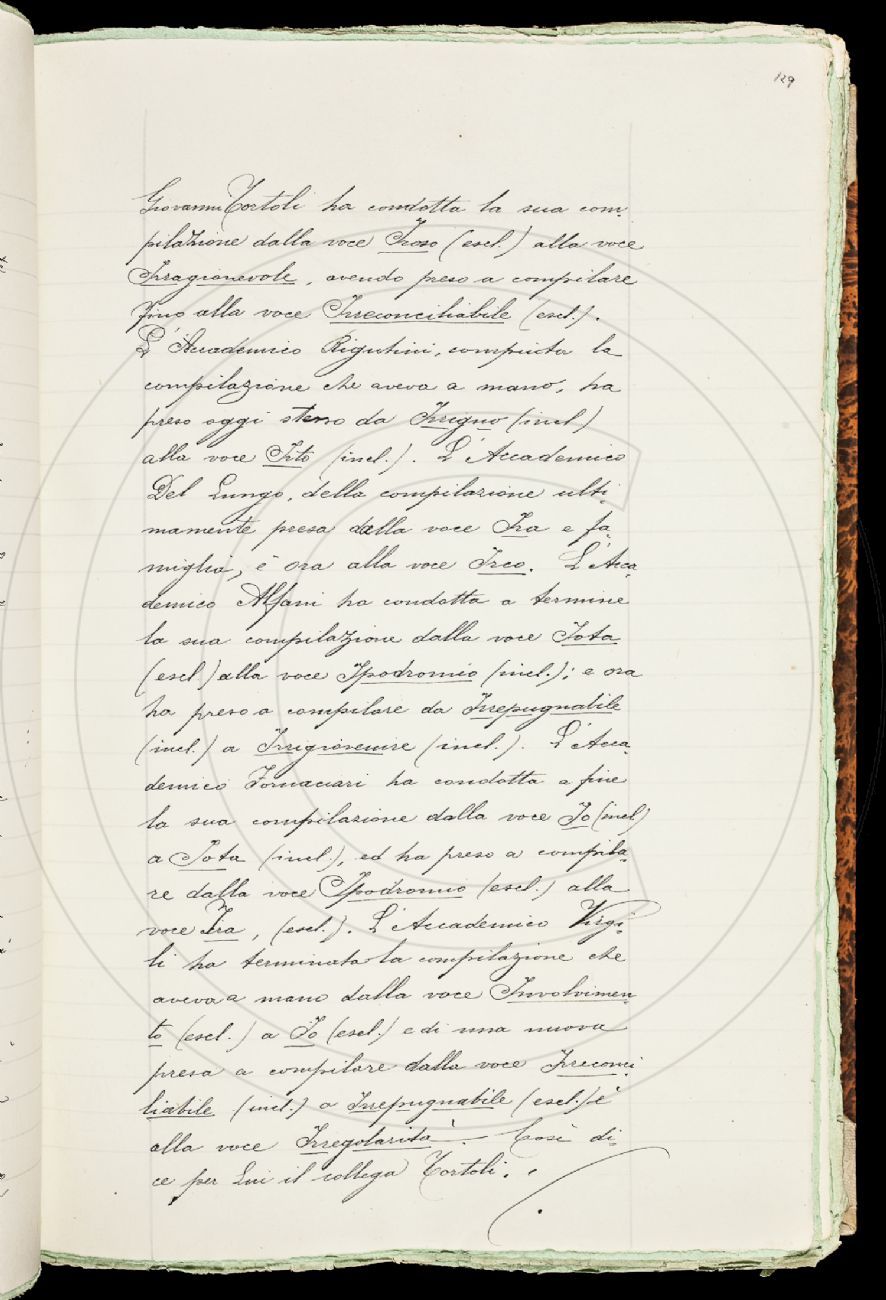 129
Giovanni Tortoli ha condotta la sua com-
pilazione dalla voce Iroso (escl.) alla voce
Irragionevole, avendo preso a compilare
fino alla voce Irreconciliabile (escl.).
L'Accademico Rigutini, compiuta la
compilazione che aveva a mano, ha
preso oggi stesso da Irrigno (incl.)
alla voce Irto (incl.). L'Accademico
Del Lungo, della compilazione ulti-
mamente presa dalla voce Ira e fa-
miglia, è ora alla voce Irco. L'Acca-
demico Alfani ha condotta a termine
la sua compilazione dalla voce Iota
(escl.) alla voce Ipodromio (incl.); e ora
ha preso a compilare da Irrepugnabile
(incl.) a Irrigiovenire (incl.). L'Acca-
demico Fornaciari ha condotta a fine
la sua compilazione dalla voce Io (incl.)
a Iota (incl.), ed ha preso a compila-
re dalla voce Ipodromio (escl.) alla
voce Ira, (escl.). L'Accademico Virgi-
li ha terminata la compilazione che
aveva a mano dalla voce Involvimen-
to (escl.) a Io (escl.) e di una nuova
presa a compilare dalla voce Irreconci-
liabile (incl.) a Irrepugnabile (escl.) è
alla voce Irregolarità. Così di-
ce per Lui il collega Tortoli.